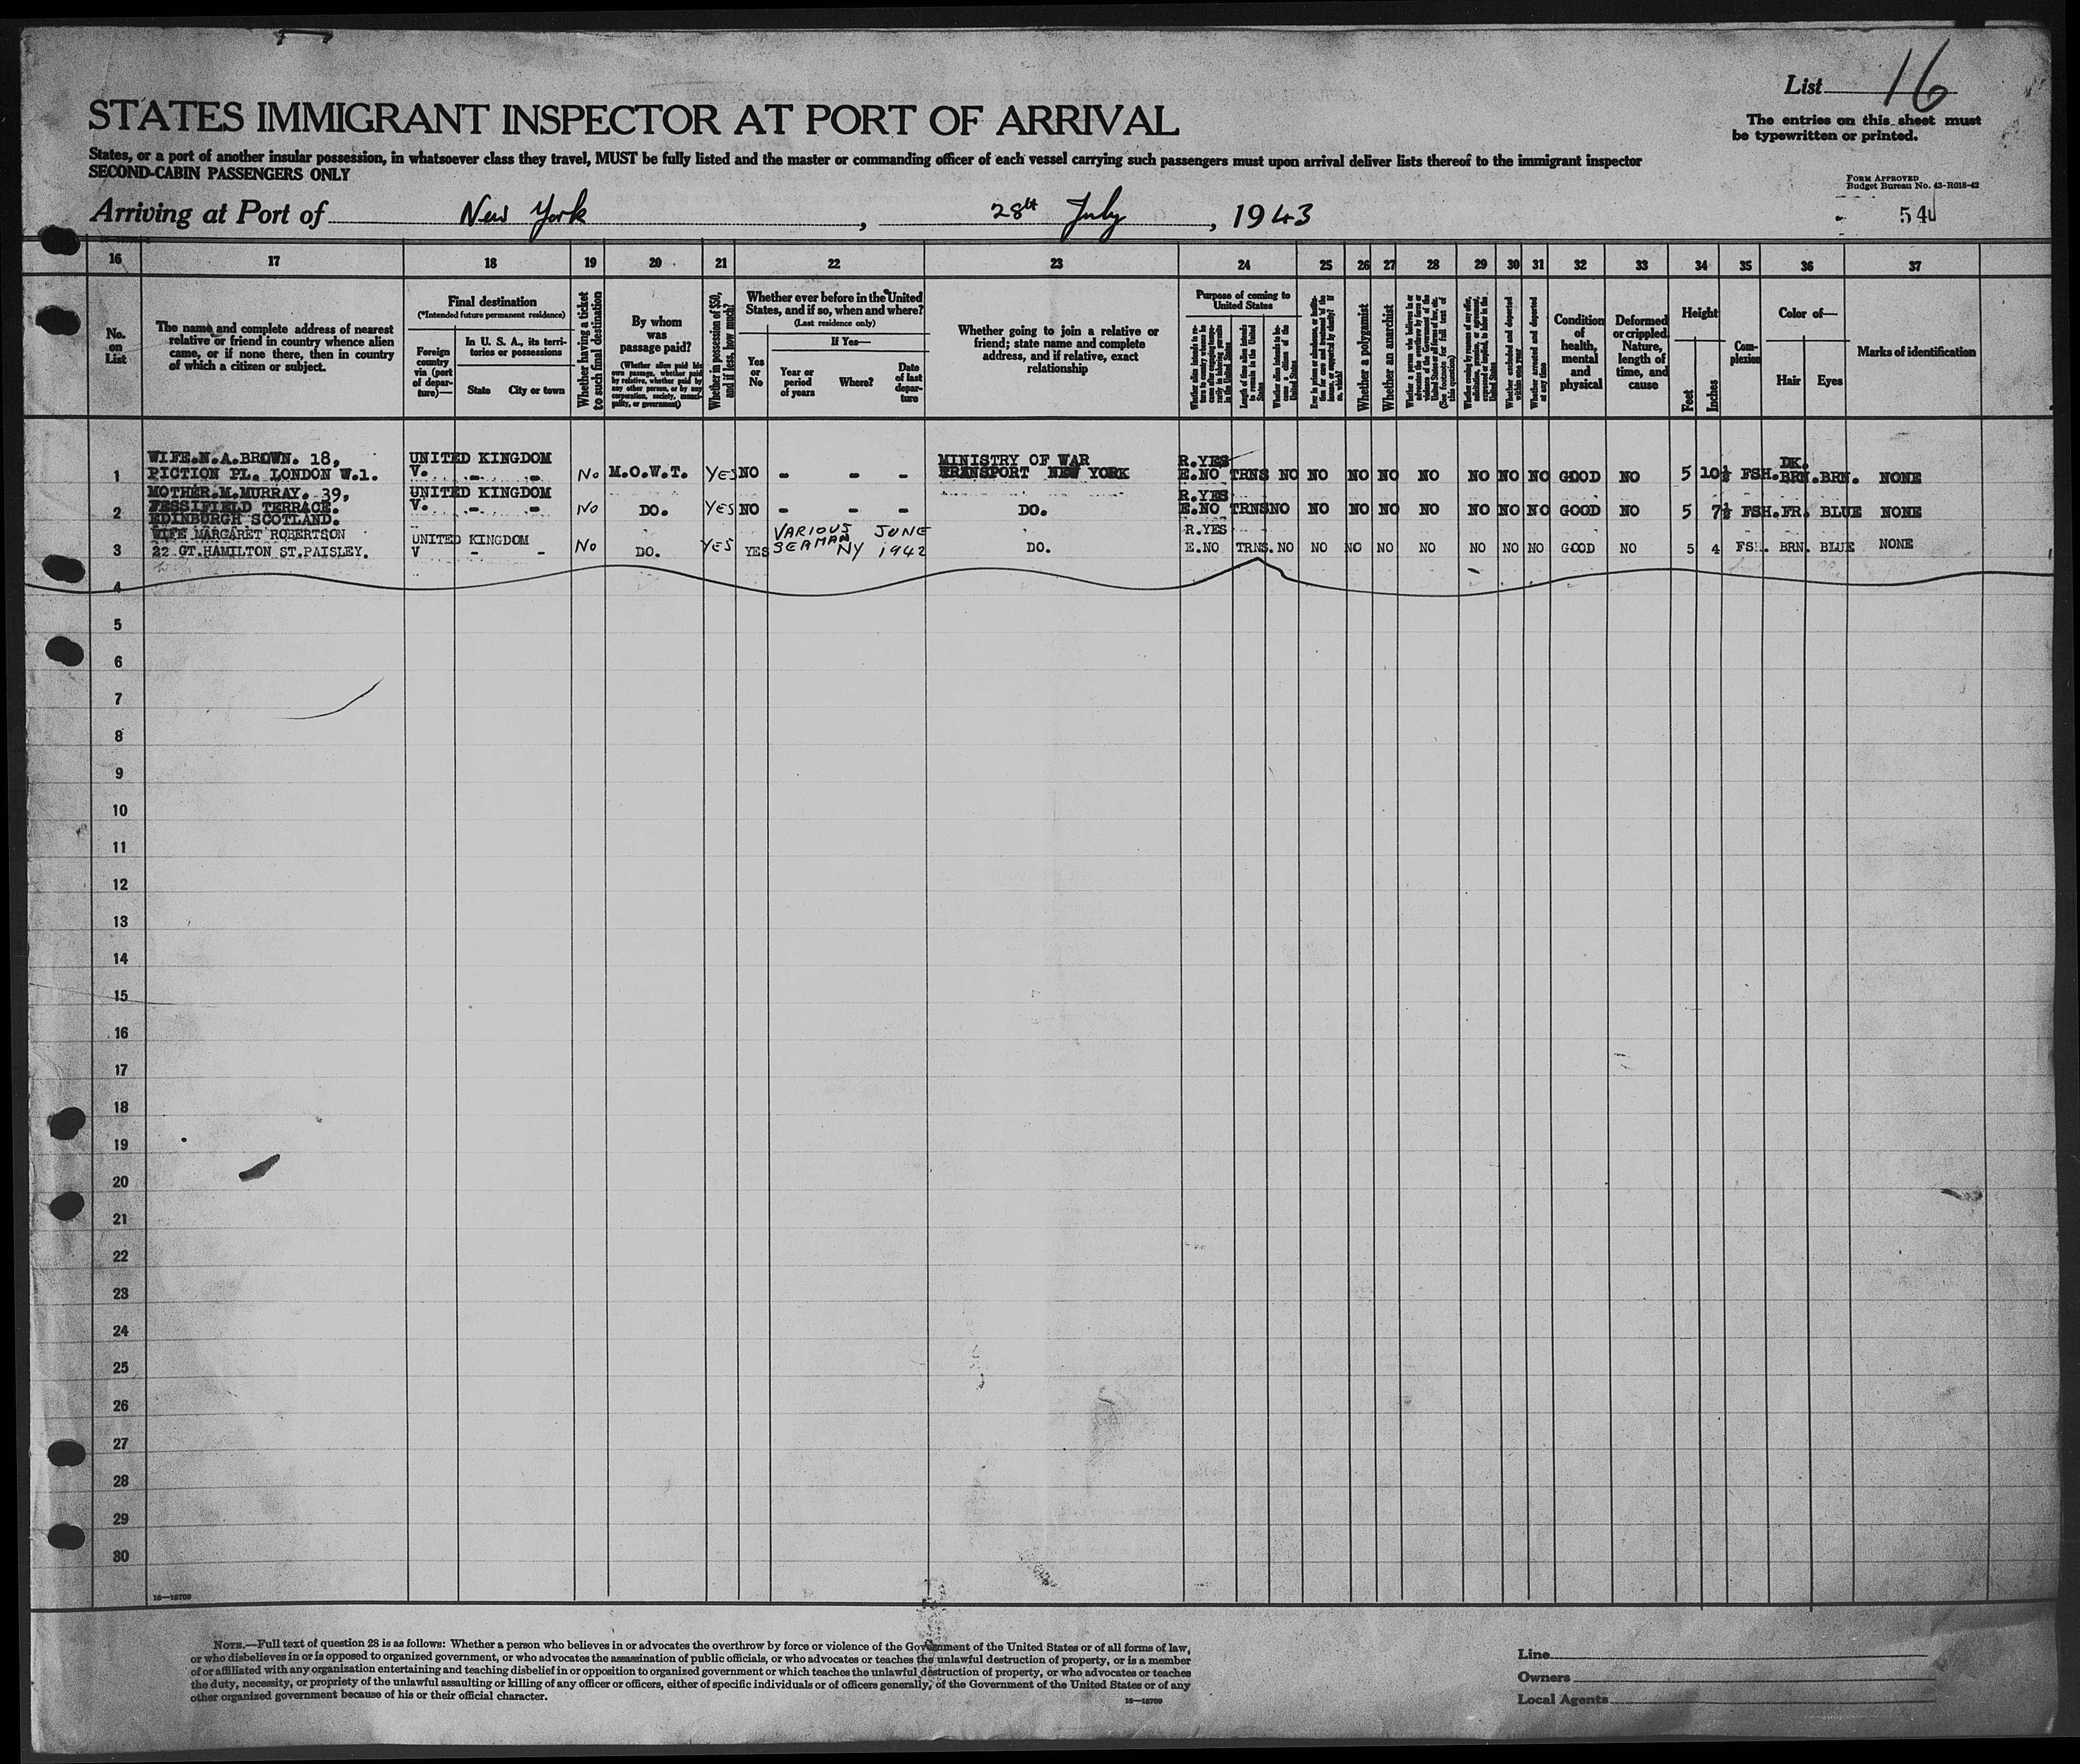 List 16
STATES IMMIGRANT INSPECTOR AT PORT OF ARRIVAL
The entries on this sheet must
be typewritten or printed.
States, or a port of another insular possession, in whatsoever class they travel, MUST be fully listed and the master or commanding officer of each vessel carrying such passengers must upon arrival deliver lists thereof to the immigrant inspector
SECOND-CABIN PASSENGERS ONLY
FORM APPROVED
Budget Bureau No. 43-R018-42
Arriving at Port of New York, 28th July, 1943
54
16 17 18 19 20 21 22 23 24 25 26 27 28 29 30 31 32 33 34 35 36 37
No. on List
The name and complete address of nearest relative or friend in country whence alien came, or if none there, then in country of which a citizen or subject.
Final destination
(*Intended future permanent residence)
Foreign country via (port of departure)—
In U. S. A., its territories or possessions
State City or town
Whether having a ticket to such final destination
By whom was passage paid?
(Whether alien paid his own passage, whether paid by relative, whether paid by any other person, or by any corporation, society, municipality, or government)
Whether in possession of $50, and if less, how much?
Whether ever before in the United States, and if so, when and where?
(Last residence only)
Yes or No
If Yes—
Year or period of years
Where?
Date of last departure
Whether going to join a relative or friend; state name and complete address, and if relative, exact relationship
Purpose of coming to United States
Length of time alien intends to remain in the United States
Whether a polygamist
Whether an anarchist
Whether arrested and deported at any time
Condition of health, mental and physical
Deformed or crippled. Nature, length of time, and cause
Height
Feet
Inches
Complexion
Color of—
Hair
Eyes
Marks of identification
WIFE.N.A.BROWN. 18, UNITED KINGDOM MINISTRY OF WAR R.YES DK.
1 PICTION PL. LONDON W.1. V. - - No M.O.W.T. YES NO - - - TRANSPORT NEW YORK E.NO TRNS NO NO NO NO NO NO NO NO GOOD NO 5 10½ FSH. BRN. BRN. NONE
MOTHER.M.MURRAY. 39, UNITED KINGDOM R.YES
2 TERRACE. V. - - No DO. YES NO - - - DO. E.NO TRNS NO NO NO NO NO NO NO NO GOOD NO 5 7½ FSH. FR. BLUE NONE
EDINBURGH SCOTLAND.
WIFE MARGARET ROBERTSON UNITED KINGDOM VARIOUS JUNE R.YES
3 22 GT.HAMILTON ST.PAISLEY. V - - No DO. YES YES SEAMAN NY 1942 DO. E.NO TRNS. NO NO NO NO NO NO NO NO GOOD NO 5 4 FSH. BRN. BLUE NONE
4
5
6
7
8
9
10
11
12
13
14
15
16
17
18
19
20
21
22
23
24
25
26
27
28
29
30
16—18709
NOTE.—Full text of question 28 is as follows: Whether a person who believes in or advocates the overthrow by force or violence of the Government of the United States or of all forms of law,
or who disbelieves in or is opposed to organized government, or who advocates the assassination of public officials, or who advocates or teaches the unlawful destruction of property, or is a member
of or affiliated with any organization entertaining and teaching disbelief in or opposition to organized government or which teaches the unlawful destruction of property, or who advocates or teaches
the duty, necessity, or propriety of the unlawful assaulting or killing of any officer or officers, either of specific individuals or of officers generally, of the Government of the United States or of any
other organized government because of his or their official character.
16—18709
Line
Owners
Local Agents